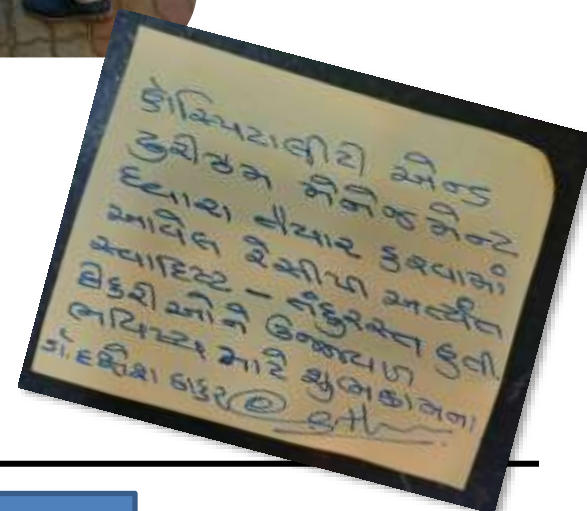 હોસ્પિટાલીટી એન્ડ
ટુરીઝમ મેનેજમેન્ટ
દ્વારા તૈયાર કરવામાં
આવેલ રેસીપી અત્યંત
સ્વાદિષ્ટ – તંદુરસ્ત હતી.
દિકરીઓને ઉજ્જવળ
ભવિષ્ય માટે શુભકામના
ડૉ. દક્ષેશ ઠાકર